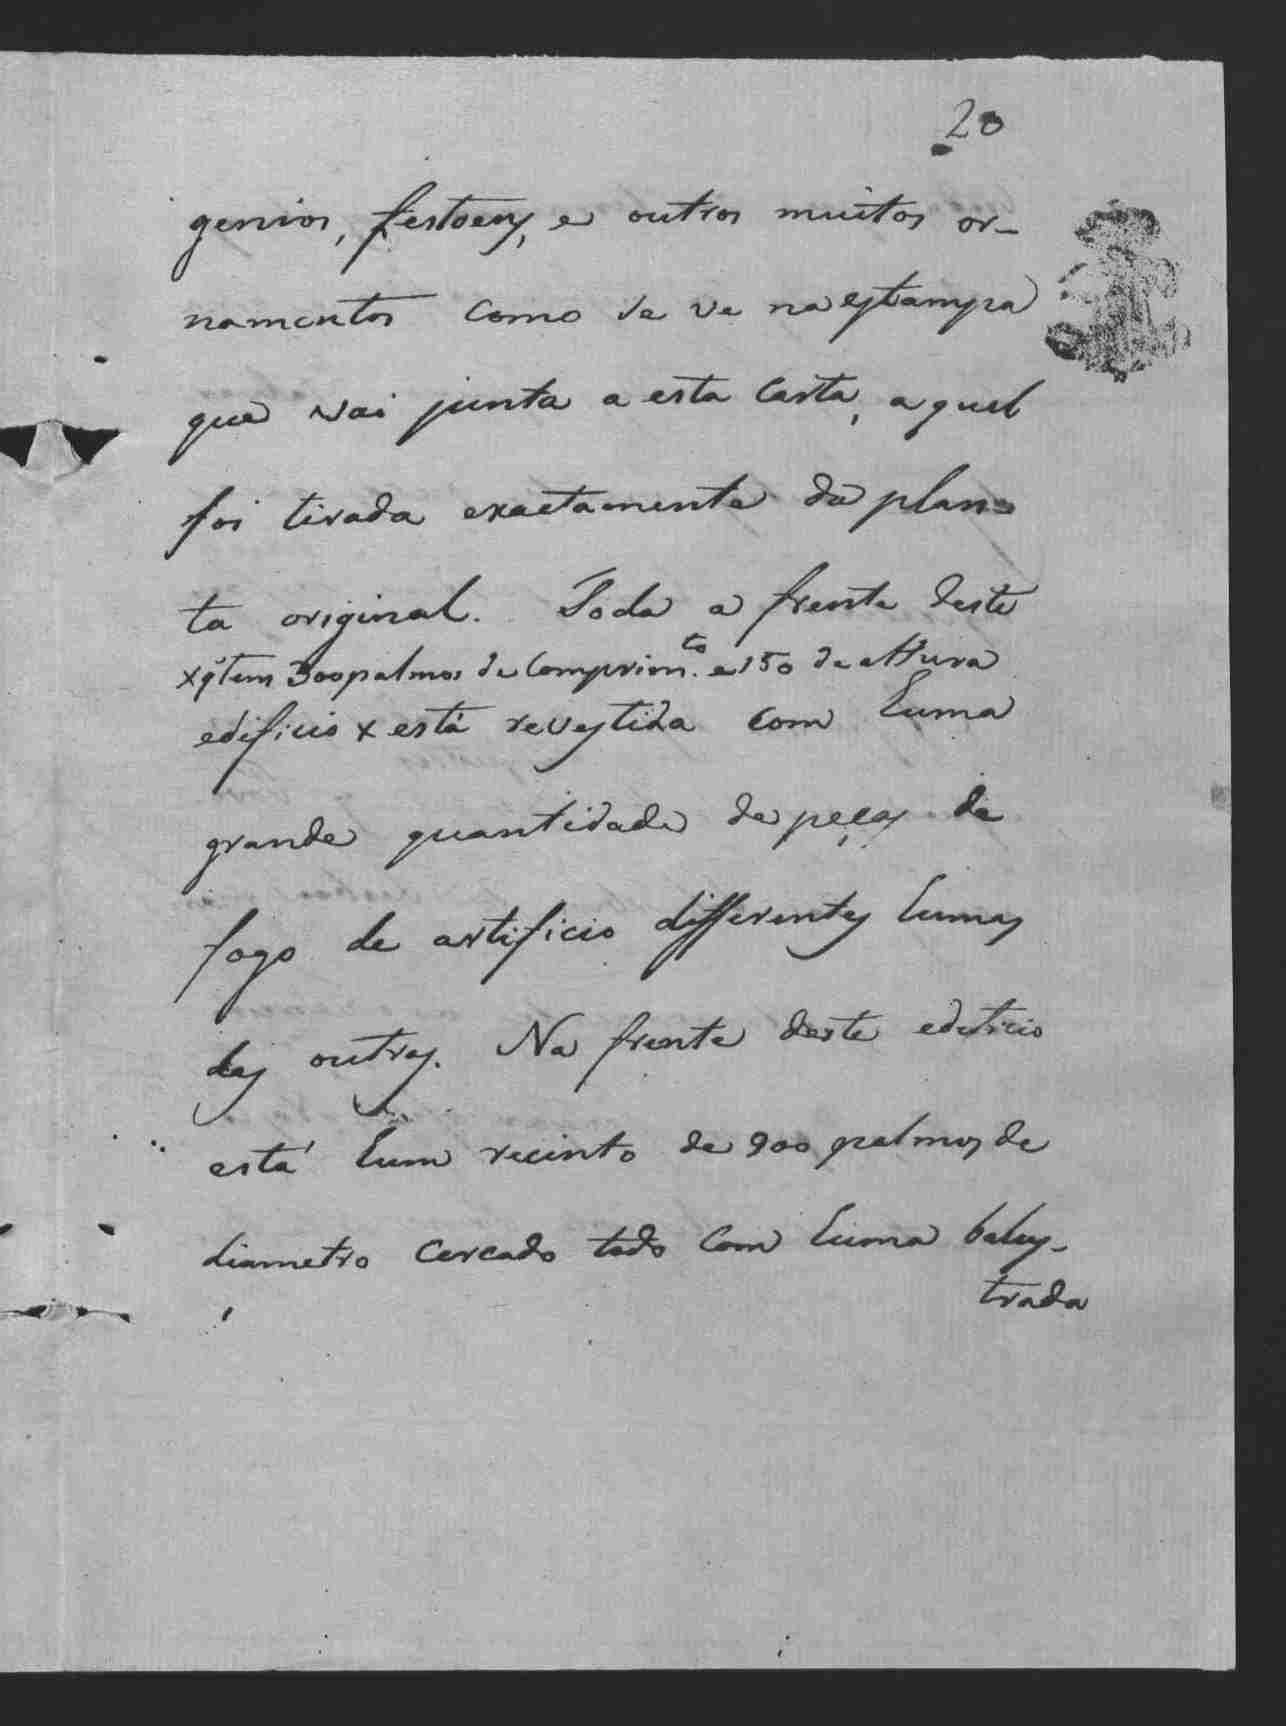 20
genios, festoens, e outros muitos or-
namentos como se ve na estampa
que vai junta a esta Carta, a qual
foi tirada exactamente da plan=
ta original. Toda a frente deste
x q̃ tem 300 palmos de Comprim.to e 150 de altura
edificio x está revestida com huma
grande quantidade de peças de
fogo de artificio differentes humas
das outras. Na frente deste edificio
está hum recinto de 900 palmos de
diametro cercado todo com huma balus-
trada